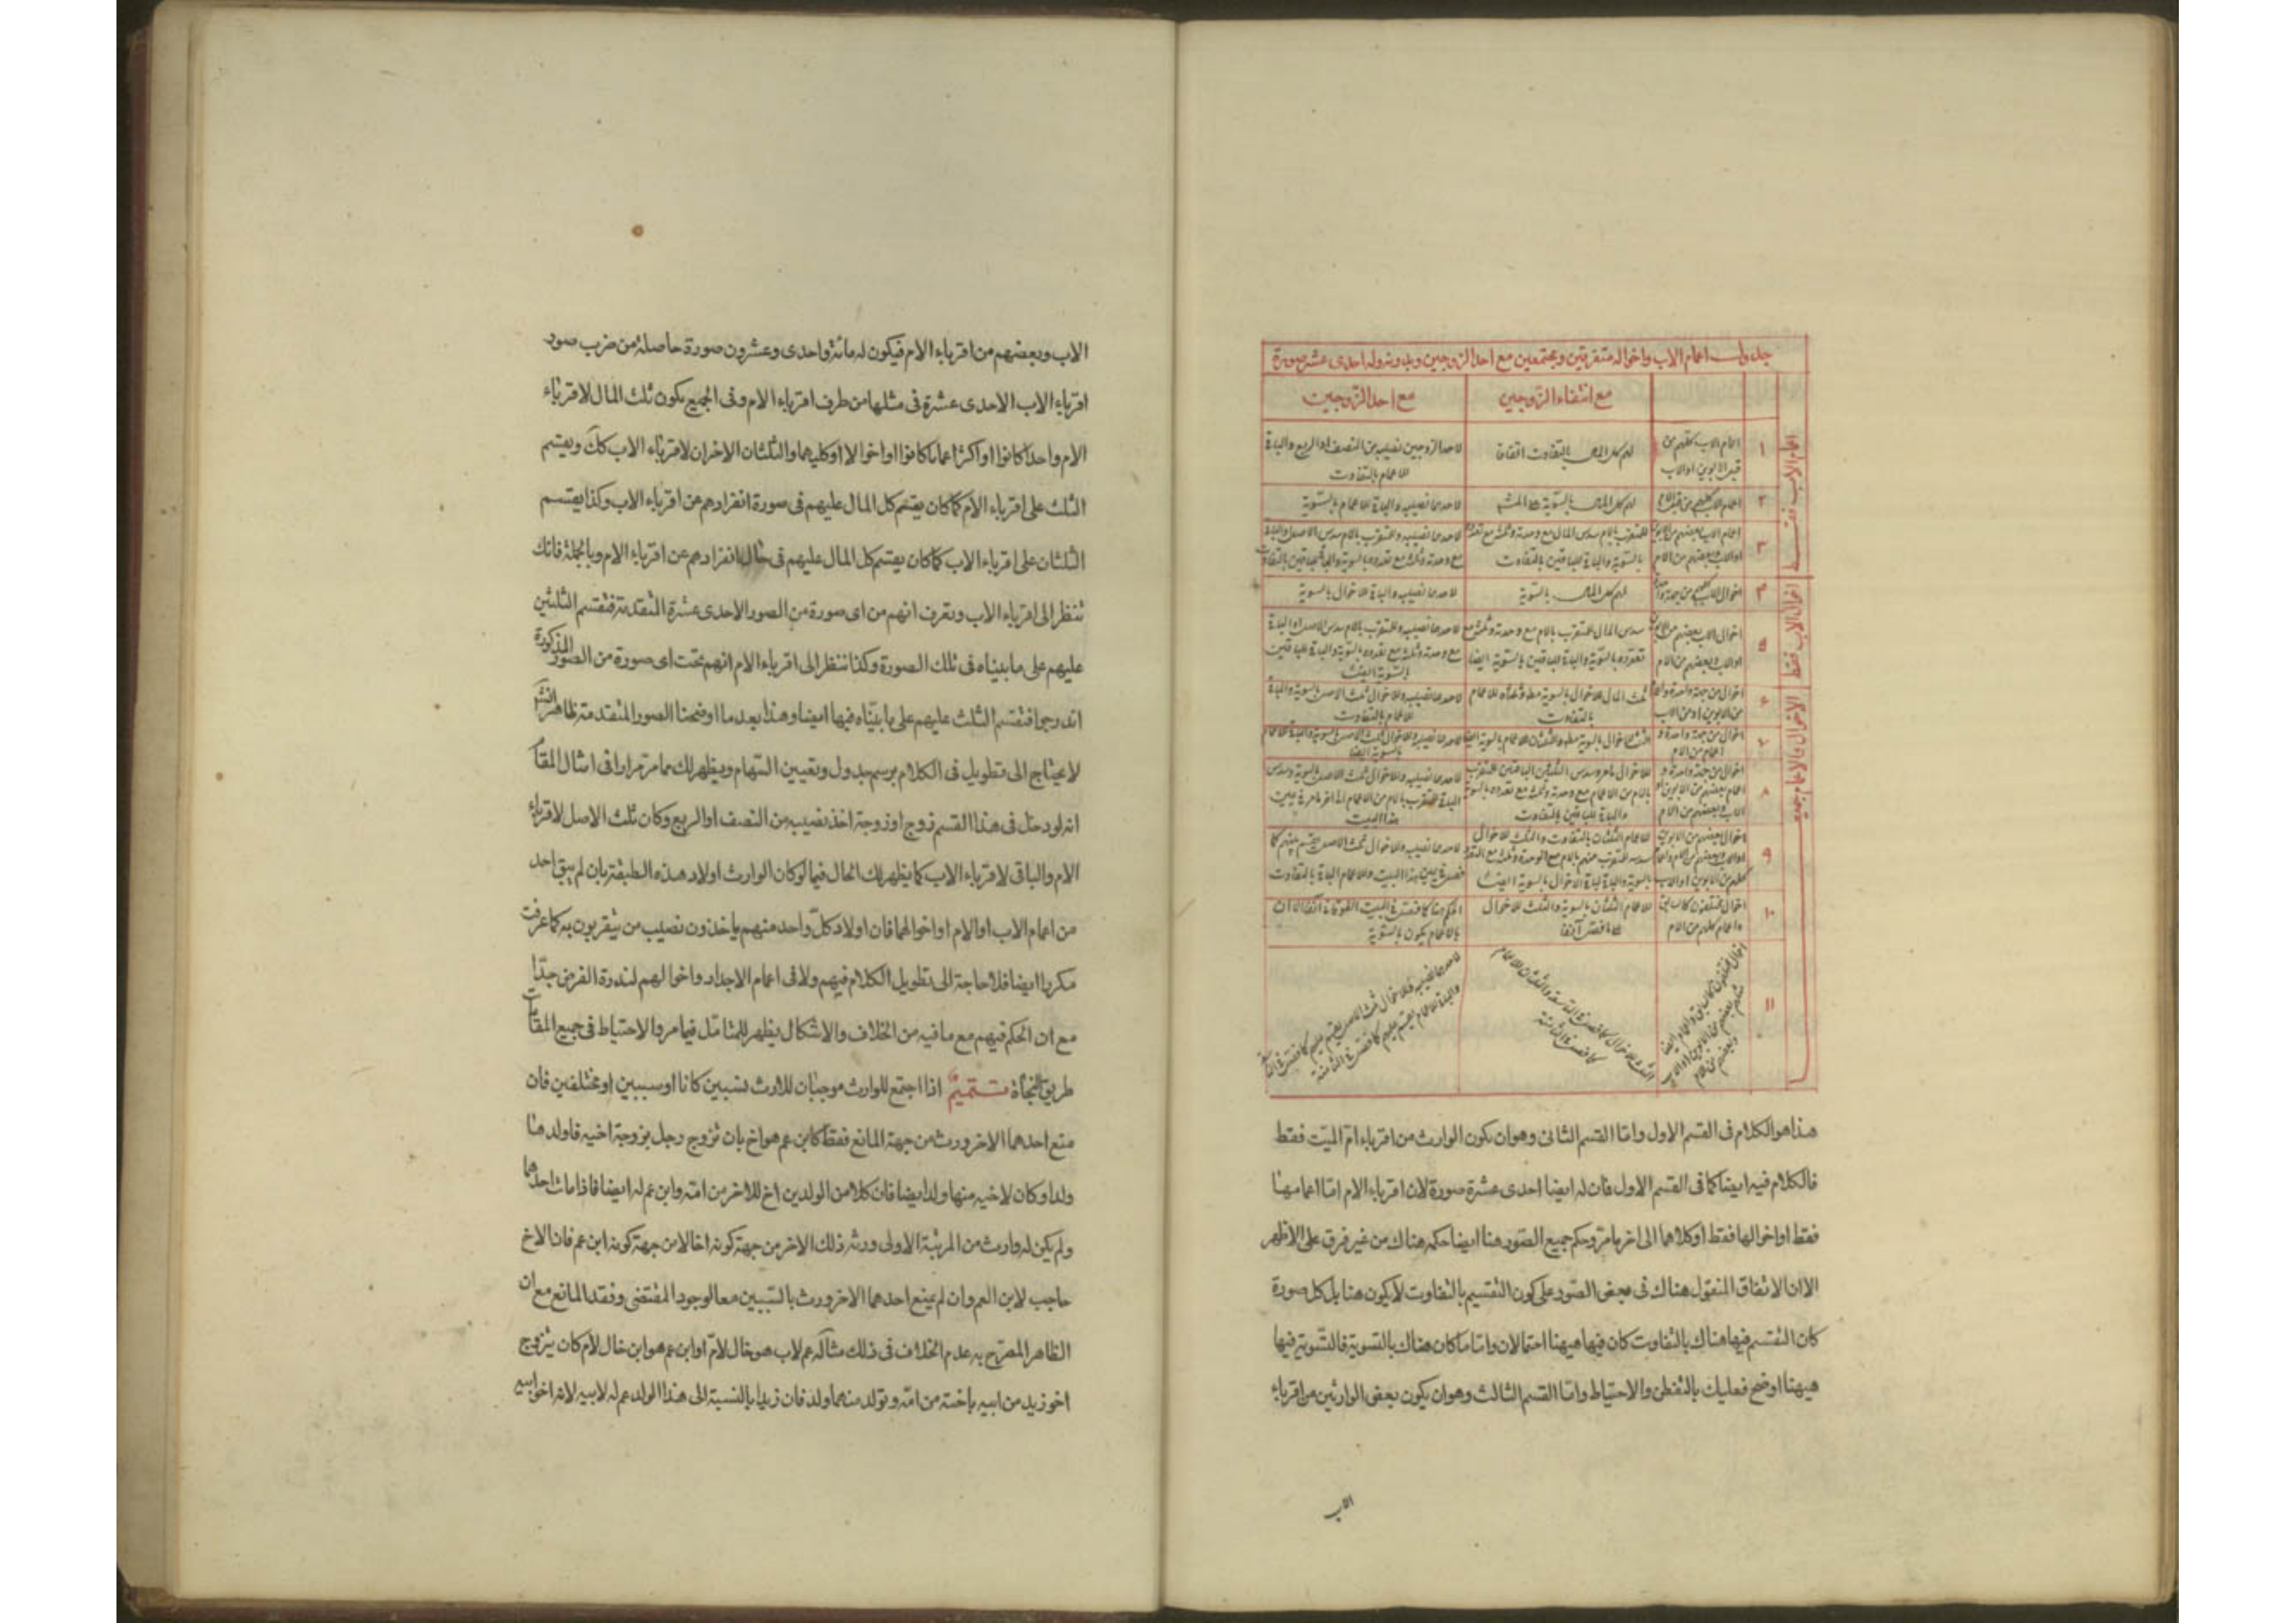 جدول اعمام الاب واخواله متفرقين ومجتمعين مع احد الزوجين وبدونه وله احدى عشر صورة
مع انتفاء الزوجين
مع احد الزوجين
اعمام الاب فقط
۱
اعمام الاب كلهم من قبل الابوين او الاب
لهم كل المال بالتفاوت اتفاقا
لاحد الزوجين نصيبه من النصف او الربع والباقي
للاعمام بالتفاوت
۲
اعمام الاب كلهم من قبل الام
لهم كل المال بالسوية
لاحدهما نصيبه والباقي للاعمام بالسوية
۳
اعمام الاب بعضهم من الابوين
او الاب وبعضهم من الام
للمتقرب بالام سدس المال مع وحدته وثلثه مع تعدده
بالسوية والباقي للباقين بالتفاوت
لاحدهما نصيبه وللمتقرب بالام سدس الاصل
مع وحدته وثلثه مع تعدده بالسوية والباقي للباقين بالتفاوت
اخوال الاب فقط
۴
اخوال الاب كلهم من جهة واحدة
لهم كل المال بالسوية
لاحدهما نصيبه والباقي للاخوال بالسوية
۵
اخوال الاب بعضهم من الابوين
او الاب وبعضهم من الام
سدس المال للمتقرب بالام مع وحدته وثلثه مع
تعدده بالسوية والباقي للباقين بالسوية ايضا
لاحدهما نصيبه وللمتقرب بالام سدس الاصل
مع وحدته وثلثه مع تعدده بالسوية والباقي للباقين
بالسوية ايضا
الاخوال والاعمام جميعا
۶
اخوال من جهة واحدة واعمام
من الابوين او من الاب
ثلث المال للاخوال بالسوية وثلثاه للاعمام
بالتفاوت
لاحدهما نصيبه وللاخوال ثلث الاصل بالسوية والباقي
للاعمام بالتفاوت
۷
اخوال من جهة واحدة و
اعمام من الام
الثلث للاخوال بالسوية والثلثان للاعمام بالسوية ايضا
لاحدهما نصيبه وللاخوال ثلث الاصل بالسوية والباقي للاعمام
بالسوية ايضا
۸
اخوال من جهة واحدة و
اعمام بعضهم من الابوين او
الاب وبعضهم من الام
للاخوال مامر وسدس الثلثين الباقيين للمتقرب
بالام من الاعمام مع وحدته وثلثه مع تعدده بالسوية
والباقي للباقين بالتفاوت
لاحدهما نصيبه وللاخوال ثلث الاصل بالسوية وسدس
الباقي للمتقرب بالام من الاعمام الى اخر مامر في يمين
هذا البيت
۹
اخوال بعضهم من الابوين
او الاب وبعضهم من الام واعمام
كلهم من الابوين او الاب
للاعمام الثلثان بالتفاوت والثلث للاخوال
سدسه للمتقرب منهم بالام مع الوحدة وثلثه مع التعدد
بالسوية والباقي لباقي الاخوال بالسوية ايضا
لاحدهما نصيبه وللاخوال ثلث الاصل يقسم بينهم كما
فصل في يمين هذا البيت وللاعمام الباقي بالتفاوت
۱۰
اخوال مختلفون كالسابق
واعمام كلهم من الام
للاعمام الثلثان بالسوية والثلث للاخوال
كما فصل آنفا
الحكم هنا كما فصل في البيت الفوقاني آنفا الا ان
للاعمام يكون بالسوية
۱۱
هذا هو الكلام فى القسم الاول واما القسم الثانى وهو ان يكون الوارث من اقرباء ام الميت فقط
فالكلام فيه ايضا كما فى القسم الاول فان له ايضا احدى عشرة صورة لان اقرباء الام اما اعمامها
فقط او اخوالها فقط او كلاهما الى اخر ما مر وحكم جميع الصور هنا ايضا حكمه هناك من غير فرق على الاظهر
الا ان الاتفاق المنقول هناك فى بعض الصور على كون التقسيم بالتفاوت لا يكون هنا بل كل صورة
كان التقسيم فيها هناك بالتفاوت كان فيها هيهنا احتمالان واما ما كان هناك بالتسوية فالتسوية فيها
هيهنا اوضح فعليك بالتفطن والاحتياط واما القسم الثالث وهو ان يكون بعض الوارثين من اقرباء
الاب
الاب وبعضهم من اقرباء الام فيكون له مائة واحدى وعشرون صورة حاصلة من ضرب صور
اقرباء الاب الاحدى عشرة فى مثلها من طرف اقرباء الام وفى الجميع يكون ثلث المال لاقرباء
الام واحدا كانوا او اكثر اعماما كانوا او اخوالا او كليهما والثلثان الاخران لاقرباء الاب كك ويقسم
الثلث على اقرباء الام كما كان يقسم كل المال عليهم فى صورة انفرادهم عن اقرباء الاب وكذا يقسم
الثلثان على اقرباء الاب كما كان يقسم كل المال عليهم فى حال انفرادهم عن اقرباء الام وبالجملة فانك
تنظر الى اقرباء الاب وتعرف انهم من اى صورة من الصور الاحدى عشرة المتقدمة فتقسم الثلثين
عليهم على ما بيناه فى تلك الصورة وكذا تنظر الى اقرباء الام انهم تحت اى صورة من الصور المذكورة
اندرجوا فتقسم الثلث عليهم على ما بيناه فيها ايضا وهذا بعد ما اوضحنا الصور المتقدمة ظاهر
لا يحتاج الى تطويل فى الكلام برسم جدول وتعيين السهام ويظهر لك مما مر مرارا فى امثال المقام
انه لو دخل فى هذا القسم زوج او زوجة اخذ نصيبه من النصف او الربع وكان ثلث الاصل لاقرباء
الام والباقى لاقرباء الاب كما يظهر لك الحال فيما لو كان الوارث اولاد هذه الطبقة بان لم يبق احد
من اعمام الاب او الام او اخوالهما فان اولاد كل واحد منهم ياخذون نصيب من يتقربون به كما عرفت
مكررا ايضا فلا حاجة الى تطويل الكلام فيهم ولا فى اعمام الاجداد واخوالهم لندرة الفرض جدا
مع ان الحكم فيهم مع ما فيه من الخلاف والاشكال يظهر للمتامل فيما مر والاحتياط فى جميع المقامات
طريق النجاة تتميم اذا اجتمع للوارث موجبان للارث نسبيين كانا او سببيين او مختلفين فان
منع احدهما الاخر ورث من جهة المانع فقط كابن عم هو اخ بان تزوج رجل بزوجة اخيه فاولد منها
ولدا وكان لاخيه منها ولد ايضا فان كلا من الولدين اخ للاخر من امه وابن عم له ايضا فاذا مات احدهما
ولم يكن له وارث من المرتبة الاولى ورثه ذلك الاخر من جهة كونه اخا لا من جهة كونه ابن عم فان الاخ
حاجب لابن العم وان لم يمنع احدهما الاخر ورث بالسببين معا لوجود المقتضى وفقد المانع مع ان
الظاهر المصرح به عدم الخلاف فى ذلك مثاله عم لاب هو خال لام او ابن عم هو ابن خال لام كان يتزوج
اخو زيد من ابيه باخته من امه وتولد منهما ولد فان زيدا بالنسبة الى هذا الولد عم له لابيه لانه اخو ابيه